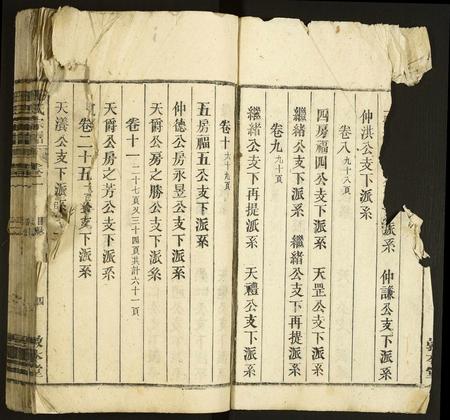 派系 仲謙公支下派系
仲洪公支下派系
卷八 九十八頁
四房福四公支下派系 天罡公支下派系
繼緒公支下派系 繼緒公支下再提派系
卷九 九十頁
繼緒公支下再提派系 天禮公支下派系
卷十 六十九頁
五房福五公支下派系
仲德公房永昱公支下派系
天爵公房之勝公支下派系
卷十一 二十七頁又三十四頁共計六十一頁
天爵公房之芳公支下派系
卷二十五 公支下派系
天瀁公支下派系
四
敦本堂